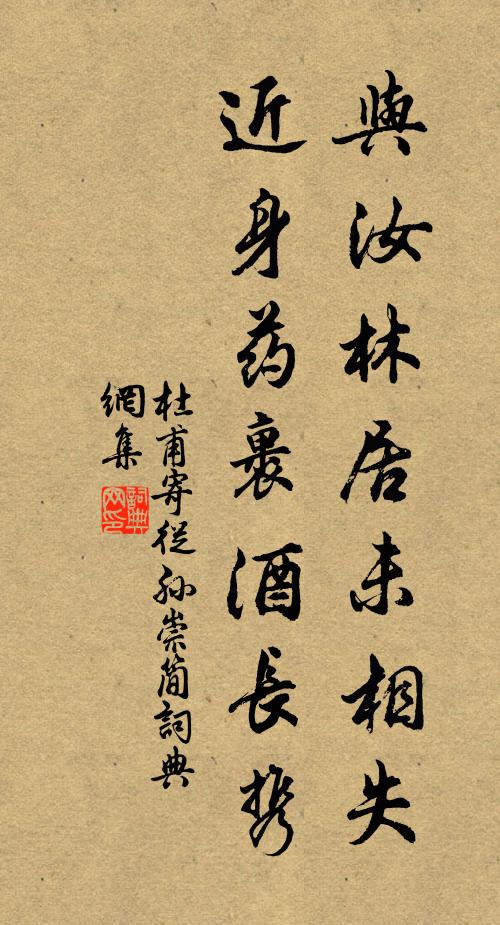 與汝林居未相失
近身药裹酒長携
杜甫寄從孙崇簡詞典
網集
詞典
网印